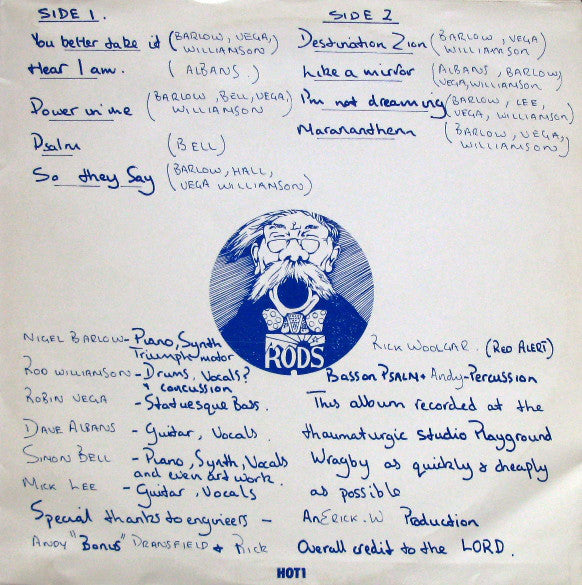 SIDE 1.
You better take it (BARLOW, VEGA,
WILLIAMSON)
Hear I am. (ALBANS.)
Power in me (BARLOW, BELL, VEGA,
WILLIAMSON)
Psalm (BELL)
So they Say (BARLOW, HALL,
VEGA WILLIAMSON)
SIDE 2
Destination Zion (BARLOW, VEGA)
WILLIAMSON)
Like a mirror (ALBANS, BARLOW,
VEGA, WILLIAMSON
I'm not dreaming (BARLOW, LEE,
VEGA, WILLIAMSON)
Marananthem (BARLOW, VEGA,
WILLIAMSON)
RODS
NIGEL BARLOW - Piano, Synth
Triumph motor
ROD WILLIAMSON - Drums, Vocals?
+ concussion
ROBIN VEGA - Statuesque Bass.
DAVE ALBANS - Guitar, Vocals.
SIMON BELL - Piano, Synth, Vocals
and even art work.
MICK LEE - Guitar, Vocals
Special thanks to engineers -
ANDY "BONUS" DRANSFIELD + RICK
RICK WOOLGAR. (RED ALERT)
Bass on PSALM + Andy - Percussion
This album recorded at the
thaumaturgic studio Playground
Wragby as quickly & cheaply
as possible
An Erick. W Production
Overall credit to the LORD.
HOT1